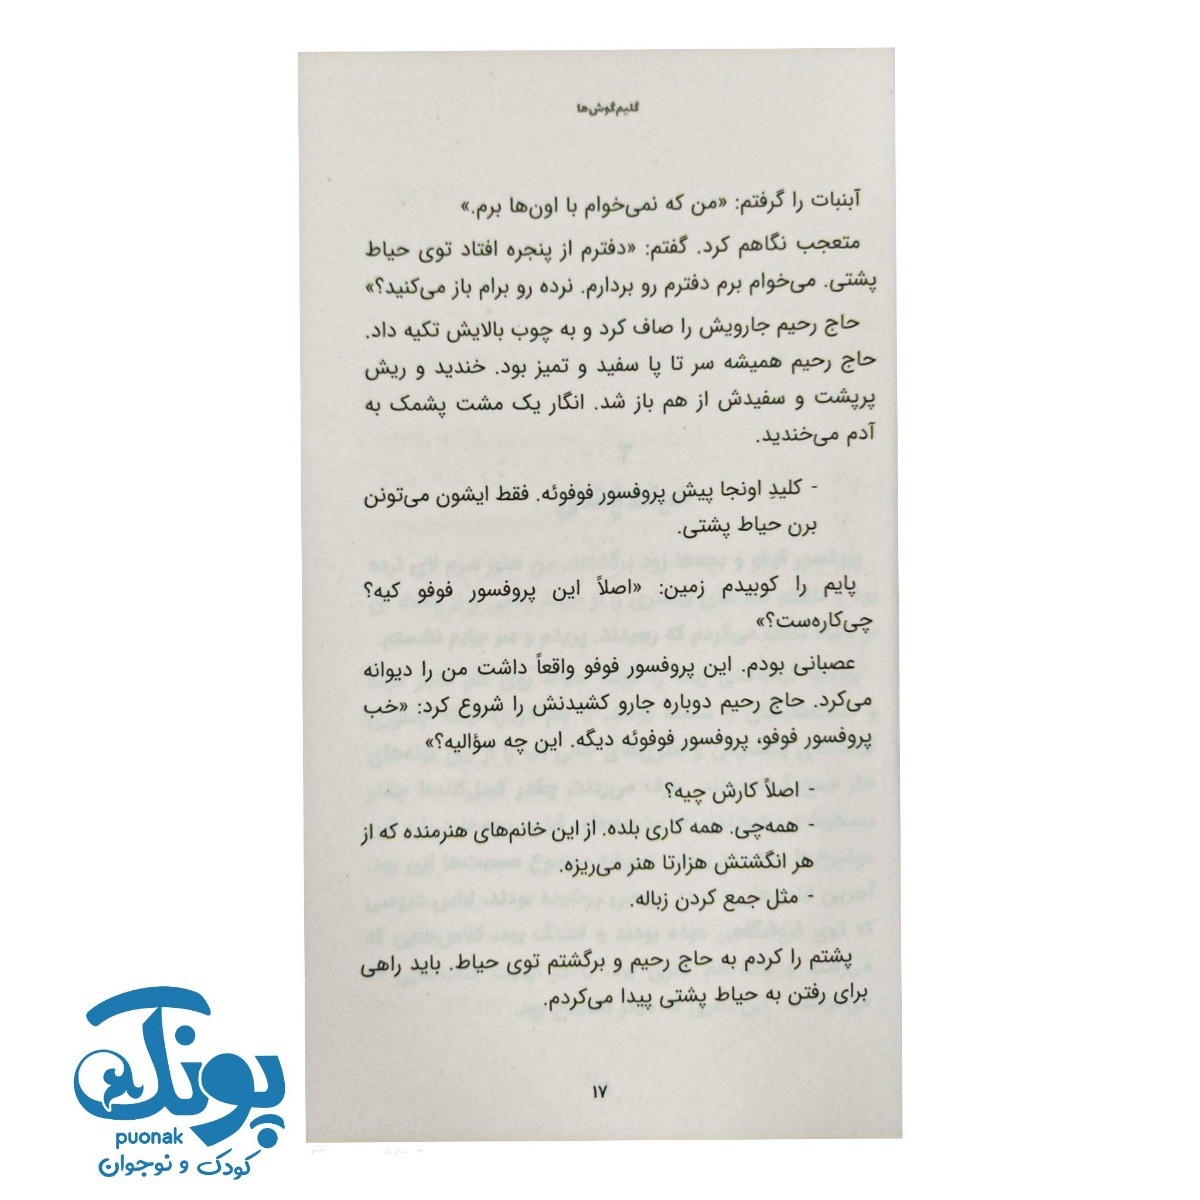 گلیم‌گوش‌ها
آبنبات را گرفتم: «من که نمی‌خوام با اون‌ها برم.»
متعجب نگاهم کرد. گفتم: «دفترم از پنجره افتاد توی حیاط
پشتی. می‌خوام برم دفترم رو بردارم. نرده رو برام باز می‌کنید؟»
حاج رحیم جارویش را صاف کرد و به چوب بالایش تکیه داد.
حاج رحیم همیشه سر تا پا سفید و تمیز بود. خندید و ریش
پرپشت و سفیدش از هم باز شد. انگار یک مشت پشمک به
آدم می‌خندید.
- کلیدِ اونجا پیش پروفسور فوفوئه. فقط ایشون می‌تونن
برن حیاط پشتی.
پایم را کوبیدم زمین: «اصلاً این پروفسور فوفو کیه؟
چی‌کاره‌ست؟»
عصبانی بودم. این پروفسور فوفو واقعاً داشت من را دیوانه
می‌کرد. حاج رحیم دوباره جارو کشیدنش را شروع کرد: «خب
پروفسور فوفو، پروفسور فوفوئه دیگه. این چه سؤالیه؟»
- اصلاً کارش چیه؟
- همه‌چی. همه کاری بلده. از این خانم‌های هنرمنده که از
هر انگشتش هزارتا هنر می‌ریزه.
- مثل جمع کردن زباله.
پشتم را کردم به حاج رحیم و برگشتم توی حیاط. باید راهی
برای رفتن به حیاط پشتی پیدا می‌کردم.
۱۷
پونک
puonak
کودک و نوجوان